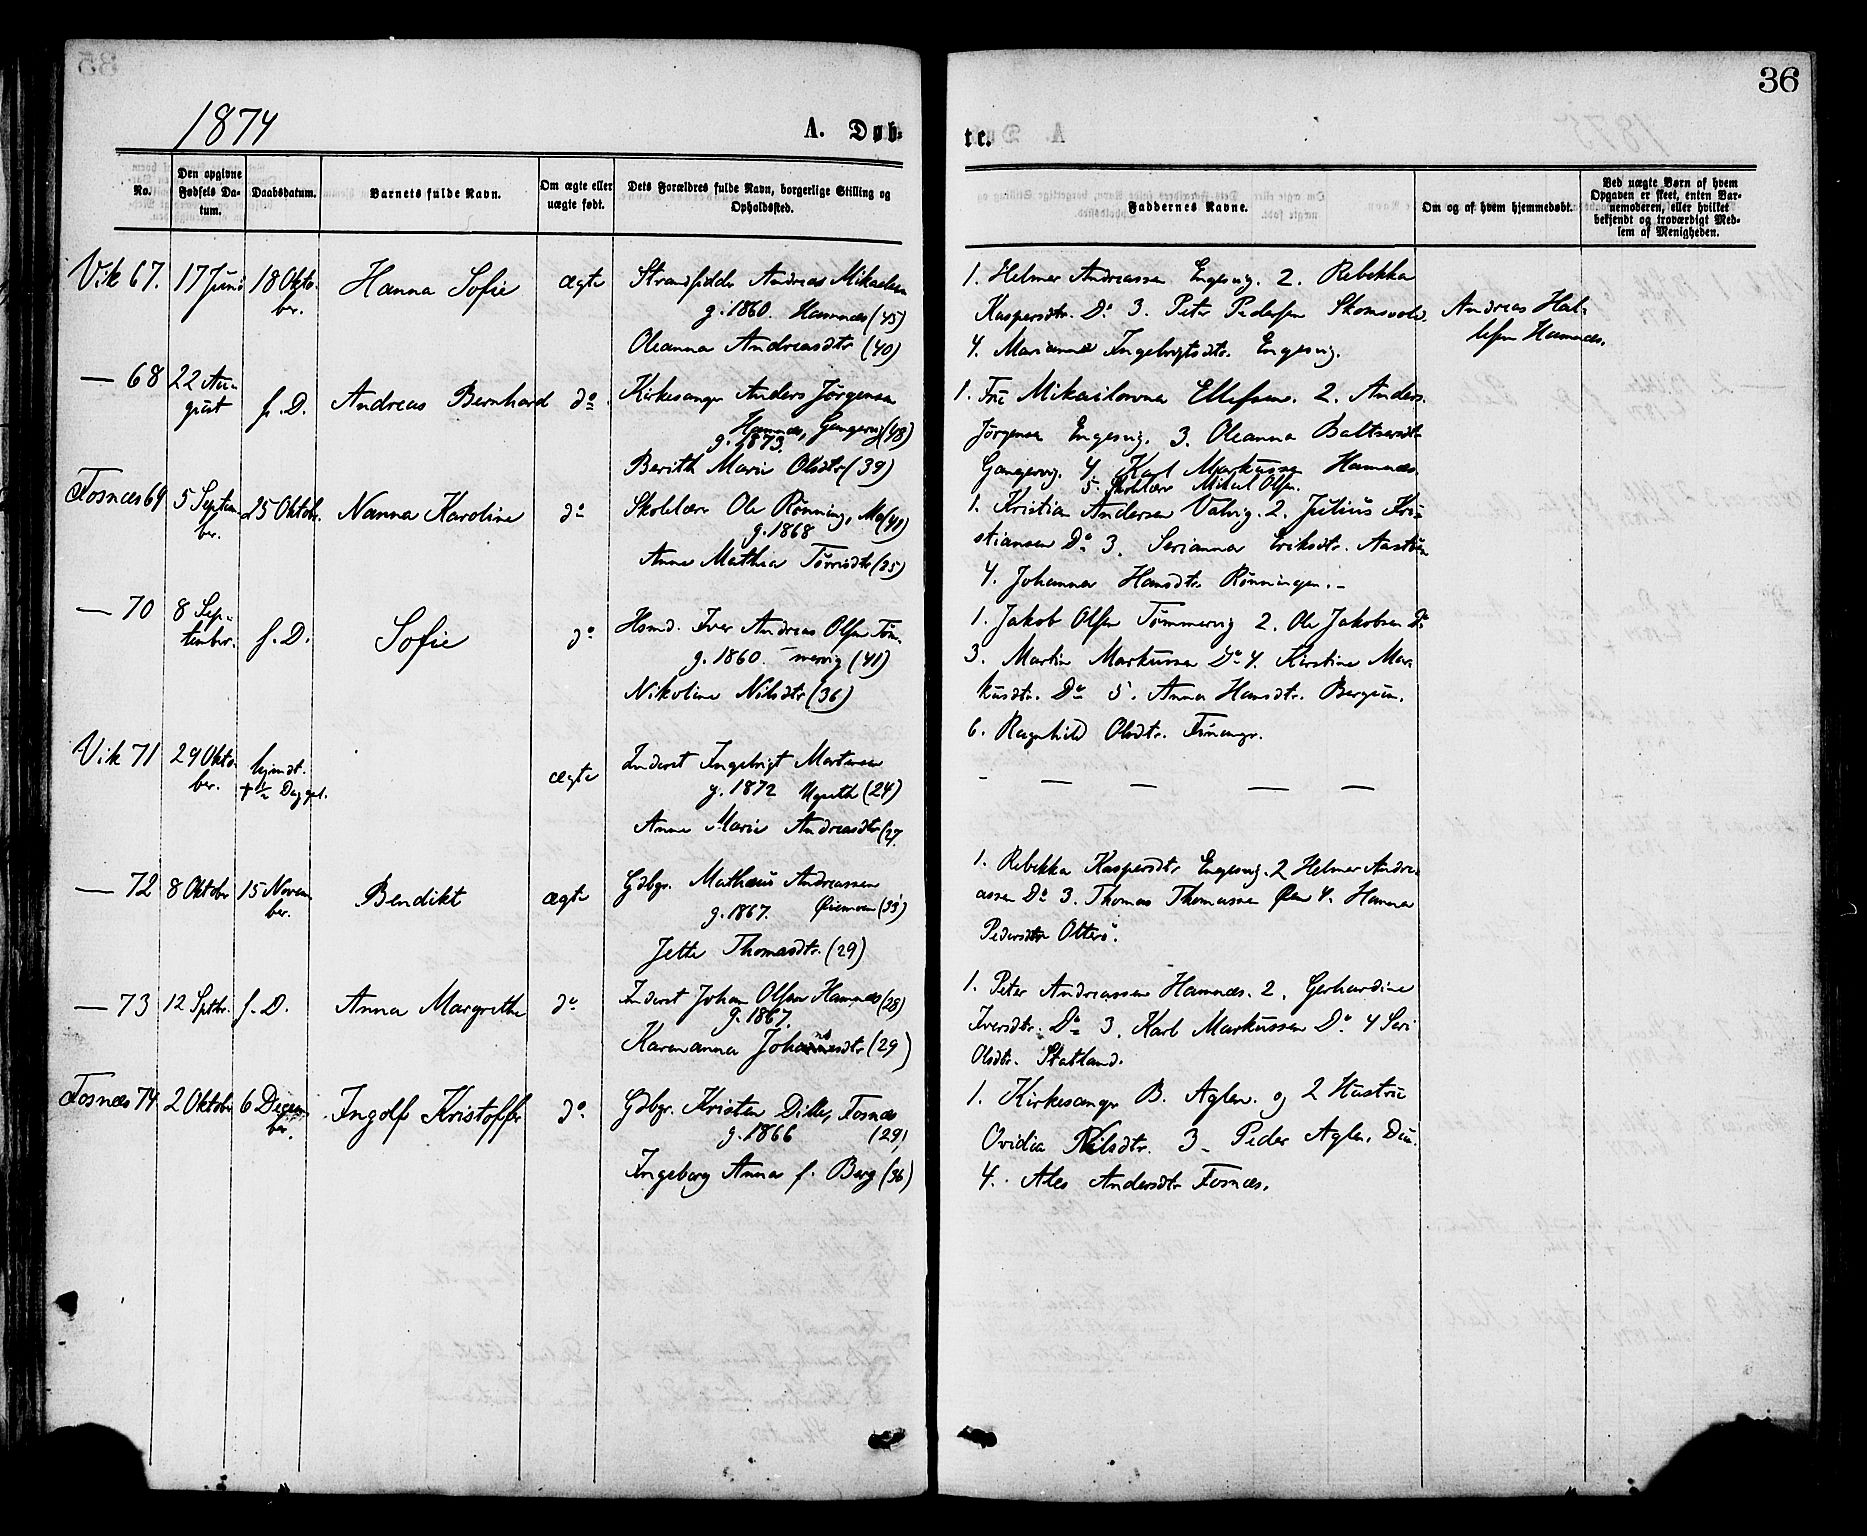 36
1874
A. Døb-
te.
No.
Den opgivne Fødsels Da-
tum.
Daabsdatum.
Barnets fulde Navn.
Om ægte eller
uægte født.
Dets Forældres fulde Navn, borgerlige Stilling og
Opholdssted.
Faddernes Navne.
Om og af hvem hjemmedøbt.
Ved uægte Børn af hvem
Opgaven er skeet, enten Bar-
nemoderen, eller hvilket
bekjendt og troværdigt Med-
lem af Menigheden.
Vik 67.
17 Juni
18 Okto-
ber.
Hanna Sofie
ægte
Strandsidder Andreas Mikaelsen
g. 1860. Hamnæs (45)
Oleanna Andreasdtr (40)
1. Helmer Andreassen Engesvig. 2. Rebekka
Kaspersdtr. Do 3. Peter Pedersen Skomsvold.
4. Marianna Ingebrigtsdtr. Engesvig.
Andreas Hal-
lesen Hamnæs.
— 68
22 Au-
gust
f. D.
Andreas Bernhard
do
Kirkesanger Anders Jørgensen
Hamnæs, Gangervig (48)
g. 1873.
Berith Marie Olsdtr (39)
1. Fru Mikailovna Ellefsen. 2. Anders
Jørgensen Engesvig. 3. Oleanna Baltsersdtr
Gangervig. 4. Karl Markussen Hamnæs.
5. Skolelær Mikal Olsen.
Fosnæs 69
5 Septem-
ber.
25 Oktobr.
Nanna Karoline
do
Skolelærer Ole Rønning, Mo (41)
g. 1868
Anne Mathea Tørrisdtr (25)
1. Kristian Andersen Valvig. 2. Julius Kri-
stiansen Do 3. Serianna Eriksdtr. Aastøen
4. Johanna Hansdtr Rønningen. -
— 70
8 Sep-
tember.
f. D.
Sofie
do
Hsmd. Iver Andreas Olsen Tøm-
g. 1860. mervig (41)
Nikoline Nilsdtr (36)
1. Jakob Olsen Tømmervig 2. Ole Jakobsen Do
3. Martin Markussen Do 4. Kirstine Mar-
kusdtr. Do 5. Anna Hansdtr. Bergsen.
6. Ragnhild Olsdtr.
Vik 71
29 Okto-
ber.
hjemdt.
+ ½ Dag gl.
ægte
Inderst Ingebrigt Martensen
g. 1872 (24)
Anne Marie Andreasdtr (27.
- — — — —
— 72
8 Oktober
15 Novem-
ber.
Bendikt
ægte
Gdbgr. Mathæus Andreassen
g. 1867. (33)
Jette Thomasdtr. (29)
1. Rebekka Kaspersdtr Engesvig. 2 Helmer Andre-
assen Do 3. Thomas Thomassen Øen 4. Hanna
Pedersdtr Otterø.
— 73
12 Septbr.
f. D.
Anna Margrethe
do
Inderst Johan Olsen Hamnæs (28)
g. 1867.
Karenanna Johannesdtr (29)
1. Peter Andreassen Hamnæs. 2. Gerhardine
Iversdtr. Do 3. Karl Markussen Do. 4 Seri
Olsdtr. Statland.
Fosnæs 74
2 Oktober
6 Decem-
ber.
Ingolf Kristoffer
do
Gdbgr. Kristen Dille, Fosnæs
g. 1866 (29)
Ingeborg Anna f. Berg (36)
1. Kirkesanger B. Aglen. og 2 Hustru
Ovidia Nilsdtr. 3 - Peder Aglen. Dun.
4. Ales Andersdtr Fosnæs.